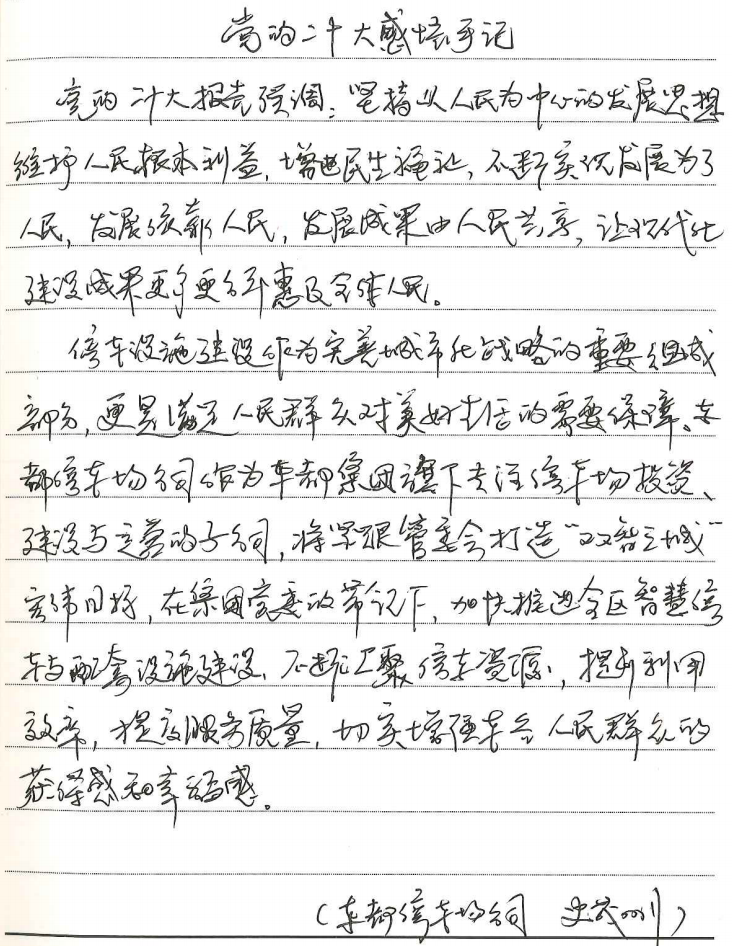 党的二十大感悟手记
党的二十大报告强调:坚持以人民为中心的发展思想
维护人民根本利益,增进民生福祉,不断实现发展为了
人民,发展依靠人民,发展成果由人民共享,让现代化
建设成果更多更公平惠及全体人民。
停车设施建设作为完善城市化战略的重要组成
部分,更是满足人民群众对美好生活的需要保障、车
都停车场公司作为车都集团旗下专注停车场投资、
建设与运营的子公司,将紧跟管委会打造“双智之城”
宏伟目标,在集团党委的带领下,加快推进全区智慧停
车与配套设施建设、不断汇聚停车资源,提升利用
效率,提高服务质量,切实增强车谷人民群众的
获得感和幸福感。
(车都停车场公司